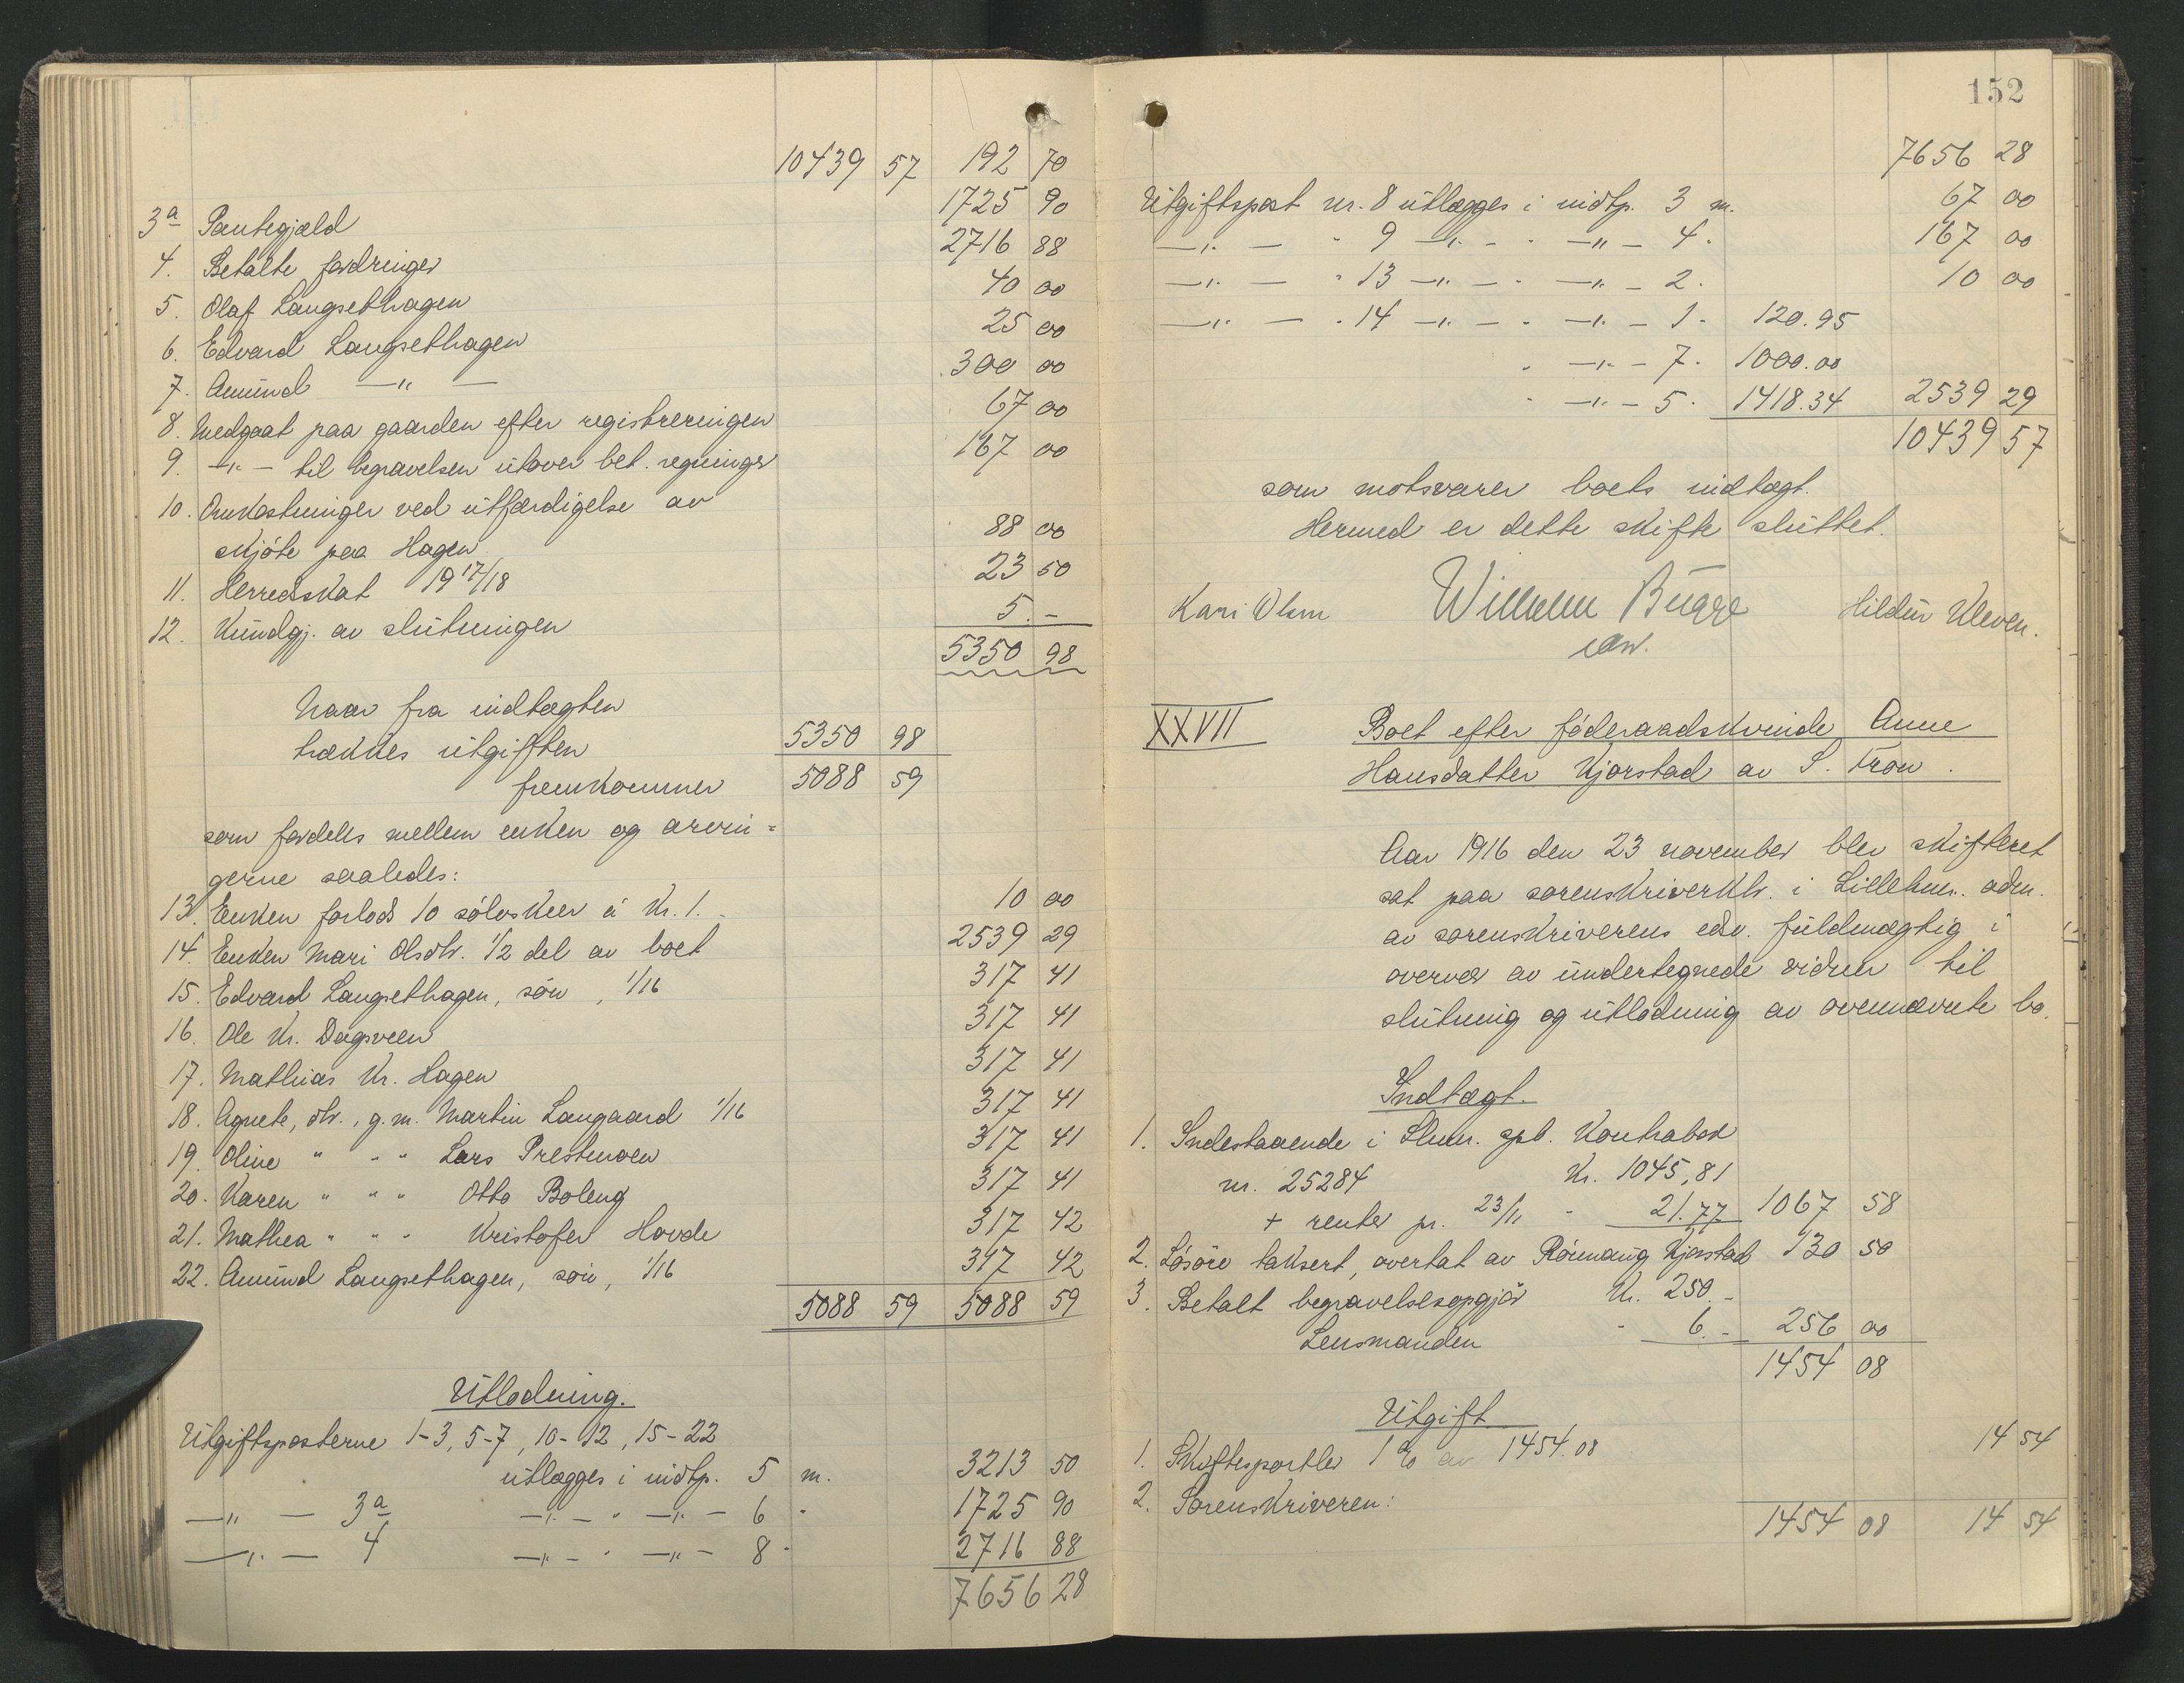 10439 57 192 70
3a Pantegjæld 1725 90
4. Betalte fordringer 2716 88
5. Olaf Langsethagen 40 00
6. Edvard Langsethagen 25 00
7. Amund —"— 300 00
8. Medgaat paa gaarden efter registreringen 67 00
9. —"— til begravelsen utover bet. regninger 167 00
10. Omkostninger ved utfærdigelse av
skjøte paa Hagen 88 00
11. Herredskat 1917/18 23 50
12. Kundgj. av slutningen 5.-
5350 98
Naar fra indtægten
trækkes utgiften 5350 98
fremkommer 5088 59
som fordeles mellem enken og arvin=
gerne saaledes:
13. Enken forlods 10 sølvskeer à Kr. 1.- 10 00
14. Enken Mari Olsdtr. 1/2 del av boet 2539 29
15. Edvard Langsethagen, søn, 1/16 317 41
16. Ole Kr. Dagsveen 317 41
17. Mathias Kr. Hagen 317 41
18. Agnete, dtr., g.m. Martin Langaard 1/16 317 41
19. Oline " " " Lars Prestmoen 317 41
20. Karen " " " Otto Boleng 317 41
21. Mathea " " " Kristofer Hovde 317 42
22. Amund Langsethagen, søn, 1/16 317 42
5088 59 5088 59
Utlodning.
Utgiftsposterne 1-3, 5-7, 10-12, 15-22
utlægges i indtp. 5 m. 3213 50
—"— 3a —"— " —"— 6 " 1725 90
—"— 4 —"— " —"— 8 " 2716 88
7656 28
152
7656 28
Utgiftspost nr. 8 utlægges i indtp. 3 m. 67 00
—"— " 9 —"— " —"— 4 " 167 00
—"— " 13 —"— " —"— 2 " 10 00
—"— " 14 —"— " —"— 1 " 120.95
" —"— 7 " 1000.00
" —"— 5 " 1418.34 2539 29
10439 57
som motsvarer boets indtægt.
Hermed er dette skifte sluttet.
Kari Olsen Wilhelm Bugge Hildur Kleven.
edv.
XXVII Boet efter føderaadskvinde Anne
Hansdatter Kjorstad av S. Fron.
Aar 1916 den 23 november blev skifteret
sat paa sorenskriverktr. i Lillehmr. adm.
av sorenskriverens edv. fuldmægtig i
overvær av undertegnede vidner til
slutning og utlodning av ovennævnte bo.
Indtægt.
1. Indestaaende i Llmr. spb. Kontrabok
nr. 25284 Kr. 1045,81
+ renter pr. 23/11 " 21.77 1067 58
2. Løsøre taksert, overtat av Rønnaug Kjorstad 130 50
3. Betalt begravelsesopgjør Kr. 250.-
Lensmanden " 6.- 256 00
1454 08
Utgift
1. Skiftesportler 1 % av 1454.08 14 54
2. Sorenskriveren:
1454 08 14 54